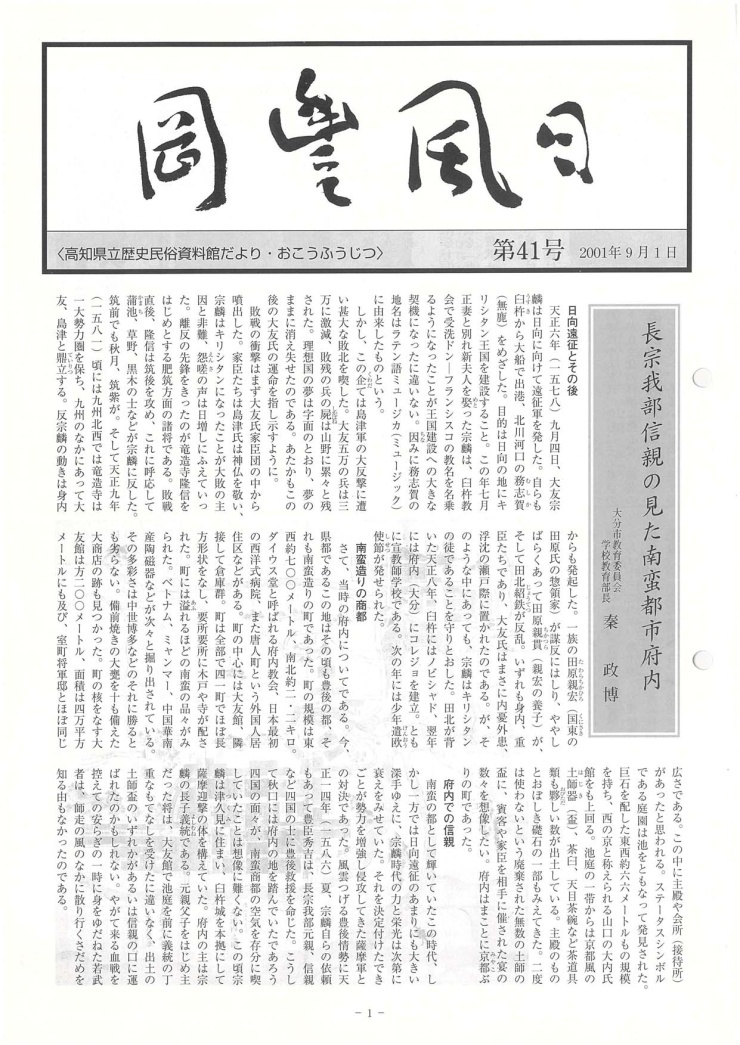 岡豊風日
〈高知県立歴史民俗資料館だより・おこうふうじつ〉
第41号 2001年9月1日
長宗我部信親の見た南蛮都市府内
大分市教育委員会
学校教育部長
秦 政博
日向遠征とその後
天正六年（一五七八）九月四日、大友宗
麟は日向に向けて遠征軍を発した。自らも
臼杵から大船で出港、北川河口の務志賀
（無鹿）をめざした。目的は日向の地にキ
リシタン王国を建設すること。この年七月
正妻と別れ新夫人を娶った宗麟は、臼杵教
会で受洗ドン＝フランシスコの教名を名乗
るようになったことが王国建設への大きな
契機になったに違いない。因みに務志賀の
地名はラテン語ミュージカ（ミュージック）
に由来したものという。
しかし、この企ては島津軍の大反撃に遭
い甚大な敗北を喫した。大友五万の兵は三
万に激減、敗残の兵の屍は山野に累々と残
された。理想国の夢は字面のとおり、夢の
ままに消え失せたのである。あたかもこの
後の大友氏の運命を指し示すように。
敗戦の衝撃はまず大友氏家臣団の中から
噴出した。家臣たちは島津氏は神仏を敬い、
宗麟はキリシタンになったことが大敗の主
因と非難、怨嗟の声は日増しにふえていっ
た。離反の先鋒をきったのが竜造寺隆信を
はじめとする肥筑方面の諸将である。敗戦
直後、隆信は筑後を攻め、これに呼応して
蒲池、草野、黒木の士などが宗麟に反した。
筑前でも秋月、筑紫が。そして天正九年
（一五八一）頃には九州北西では竜造寺は
一大勢力圏を保ち、九州のなかにあって大
友、島津と鼎立する。反宗麟の動きは身内
からも発起した。一族の田原親宏（国東の
田原氏の惣領家）が謀反にはしり、ややし
ばらくあって田原親貫（親宏の養子）が、
そして田北紹鉄が反乱。いずれも身内、重
臣たちであり、大友氏はまさに内憂外患、
浮沈の瀬戸際に置かれたのである。が、そ
のような中にあっても、宗麟はキリシタン
の徒であることを守りとおした。田北が背
いた天正八年、臼杵にはノビシャド、翌年
には府内（大分）にコレジョを建立。とも
に宣教師学校である。次の年には少年遣欧
使節が発せられた。
南蛮造りの商都
さて、当時の府内についてである。今、
県都であるこの地はその頃も豊後の都、そ
れも南蛮造りの町であった。町の規模は東
西約七〇〇メートル、南北約二・二キロ。
ダイウス堂と呼ばれる府内教会、日本最初
の西洋式病院、また唐人町という外国人居
住区などがある。町の中心には大友館、隣
接して倉庫群。町は全部で四一町でほぼ長
方形状をなし、要所要所に木戸や寺が配さ
れた。町には溢れるほどの南蛮の品々がみ
られた。ベトナム、ミャンマー、中国華南
産陶磁器などが次々と掘り出されている。
その多彩さは中世博多などのそれに勝ると
も劣らない。備前焼きの大甕を十も備えた
大商店の跡も見つかった。町の核をなす大
友館は方二〇〇メートル、面積は四万平方
メートルにも及び、室町将軍邸とほぼ同じ
広さである。この中に主殿や会所（接待所）
があったと思われる。ステータスシンボル
である庭園は池をともなって発見された。
巨石を配した東西約六六メートルもの規模
を持ち、西の京と称えられる山口の大内氏
館をも上回る。池庭の一帯からは京都風の
土師器（盃）、茶臼、天目茶碗など茶道具
類も夥しい数が出土している。主殿のもの
とおぼしき礎石の一部もみえてきた。二度
は使わないという廃棄された無数の土師の
盃に、賓客や家臣を相手に催された宴の
数々を想像したい。府内はまことに京都ぶ
りの町であった。
府内での信親
南蛮の都として輝いていたこの時代、し
かし一方では日向遠征のあまりにも大きい
深手ゆえに、宗麟時代の力と栄光は次第に
衰えをみせていた。それを決定付けたでき
ごとが勢力を増強し侵攻してきた薩摩軍と
の対決であった。風雲つげる豊後情勢に天
正一四年（一五八六）夏、宗麟自らの依頼
もあって豊臣秀吉は、長宗我部元親、信親
など四国の士に豊後救援を命じた。こうし
て秋口には府内の地を踏んでいたであろう
四国の面々が、南蛮商都の空気を存分に喫
していたことは想像に難くない。この頃宗
麟は津久見に住まい、臼杵城を本拠にして
薩摩迎撃の体を構えていた。府内の主は宗
麟の長子義統である。元親父子をはじめ主
だった将は、大友館で池庭を前に義統の丁
重なもてなしを受けたに違いなく、出土の
土師盃のいずれかがあるいは信親の口に運
ばれたのかもしれない。やがて来る血戦を
控えての安らぎの一時に身をゆだねた若武
者は、師走の風のなかに散り行くさだめを
知る由もなかったのである。
- 1 -